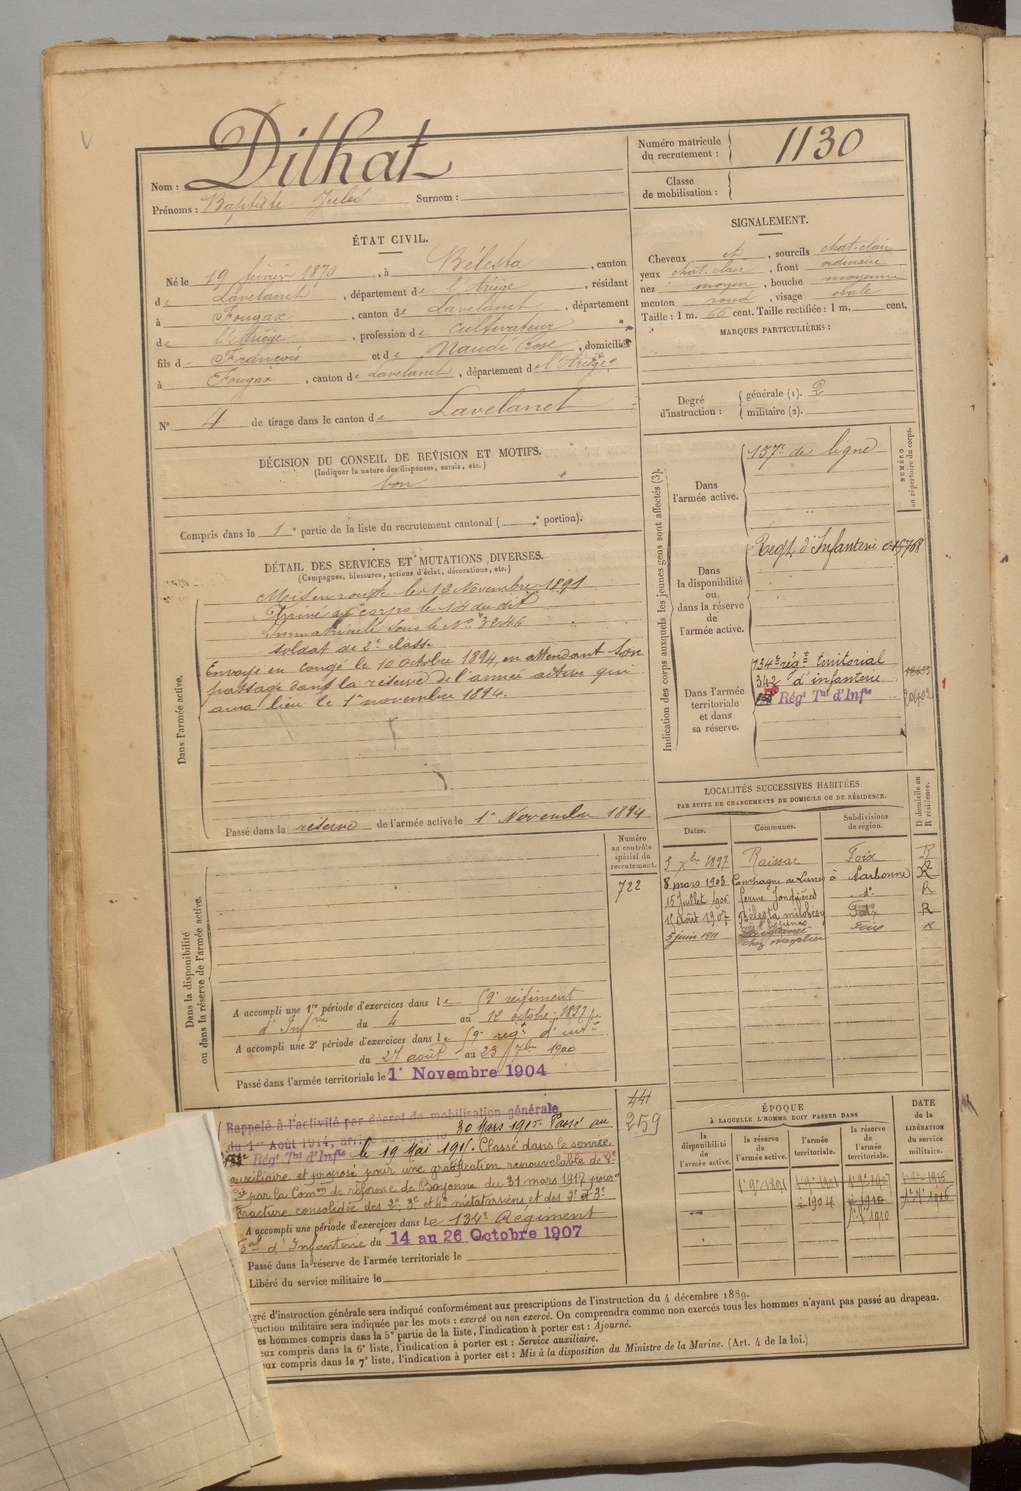 Dilhat
Nom :
Prénoms : Baptiste Jules Surnom :
Numéro matricule du recrutement : 1130
Classe de mobilisation :
ÉTAT CIVIL.
Né le 19 février 1870, à Bélesta, canton
de Lavelanet, département de l'Ariège, résidant
à Fougax, canton de Lavelanet, département
de l'Ariège, profession de cultivateur
fils de François et de Naudi Rose, domiciliés
à Fougax, canton de Lavelanet, département de l'Ariège
N° 4 de tirage dans le canton de Lavelanet
SIGNALEMENT.
Cheveux et, sourcils chat. clair
yeux chat. clair, front ordinaire
nez moyen, bouche moyenne
menton rond, visage ovale
Taille : 1 m. 66 cent. Taille rectifiée : 1 m. cent.
MARQUES PARTICULIÈRES :
Degré d'instruction : générale (1). 2
militaire (2).
DÉCISION DU CONSEIL DE REVISION ET MOTIFS.
(Indiquer la nature des dispenses, sursis, etc.)
bon
Compris dans la 1e partie de la liste du recrutement cantonal ( e portion).
DÉTAIL DES SERVICES ET MUTATIONS DIVERSES.
(Campagnes, blessures, actions d'éclat, décorations, etc.)
Dans l'armée active.
Mis en route le 12 Novembre 1891
Arrivé au corps le 14 du dit
Immatriculé sous le N° 3246
soldat de 2e classe
Envoyé en congé le 10 octobre 1894, en attendant son
passage dans la réserve de l'armée active qui
aura lieu le 1er novembre 1894.
Passé dans la réserve de l'armée active le 1er Novembre 1894
Indication des corps auxquels les jeunes gens sont affectés (3).
NUMÉRO au répertoire du corps.
Dans l'armée active.
157e de ligne
Dans la disponibilité ou dans la réserve de l'armée active.
Regt d'Infanterie
Dans l'armée territoriale et dans sa réserve.
134e régt territorial
342 d'infanterie
Régt Tal d'Infie
LOCALITÉS SUCCESSIVES HABITÉES
PAR SUITE DE CHANGEMENTS DE DOMICILE OU DE RÉSIDENCE.
D domicile ou R résidence.
Dates. Communes. Subdivisions de région.
Xbre 1897 Raissac Foix R
8 mars 1903 Narbonne R
15 juillet 1906 ferme d° R
1er Août 1907 Bélesta Foix R
5 juin 1911 Foix R
Numéro au contrôle spécial du recrutement.
722
Dans la disponibilité ou dans la réserve de l'armée active.
A accompli une 1re période d'exercices dans le 59e régiment
d'Infie du 4 au
A accompli une 2e période d'exercices dans le 59e régt d'inf
du 27 août au 23 7bre 1900
Passé dans l'armée territoriale le 1er Novembre 1904
441
259
Rappelé à l'activité par décret de mobilisation générale
du 1er Août 1914,
30 Mars 1915. Passé au
Régt Tal d'Infie le 19 Mai 1915. Classé dans le service
auxiliaire et proposé pour une gratification renouvelable de
par la Comon de réforme de Bayonne du 31 mars 1917 pour
fracture consolidée des 2e, 3e et 4e métatarsiens et des 2e et 3e
A accompli une période d'exercices dans le 134e Régiment
Tal d'Infanterie du 14 au 26 Octobre 1907
Passé dans la réserve de l'armée territoriale le
Libéré du service militaire le
ÉPOQUE
À LAQUELLE L'HOMME DOIT PASSER DANS
la disponibilité de l'armée active. la réserve de l'armée active. l'armée territoriale. la réserve de l'armée territoriale.
DATE de la LIBÉRATION du service militaire.
gré d'instruction générale sera indiqué conformément aux prescriptions de l'instruction du 4 décembre 1889.
ruction militaire sera indiquée par les mots : exercé ou non exercé. On comprendra comme non exercés tous les hommes n'ayant pas passé au drapeau.
es hommes compris dans la 5e partie de la liste, l'indication à porter est : Ajourné.
eux compris dans la 6e liste, l'indication à porter est : Service auxiliaire.
eux compris dans la 7e liste, l'indication à porter est : Mis à la disposition du Ministre de la Marine. (Art. 4 de la loi.)